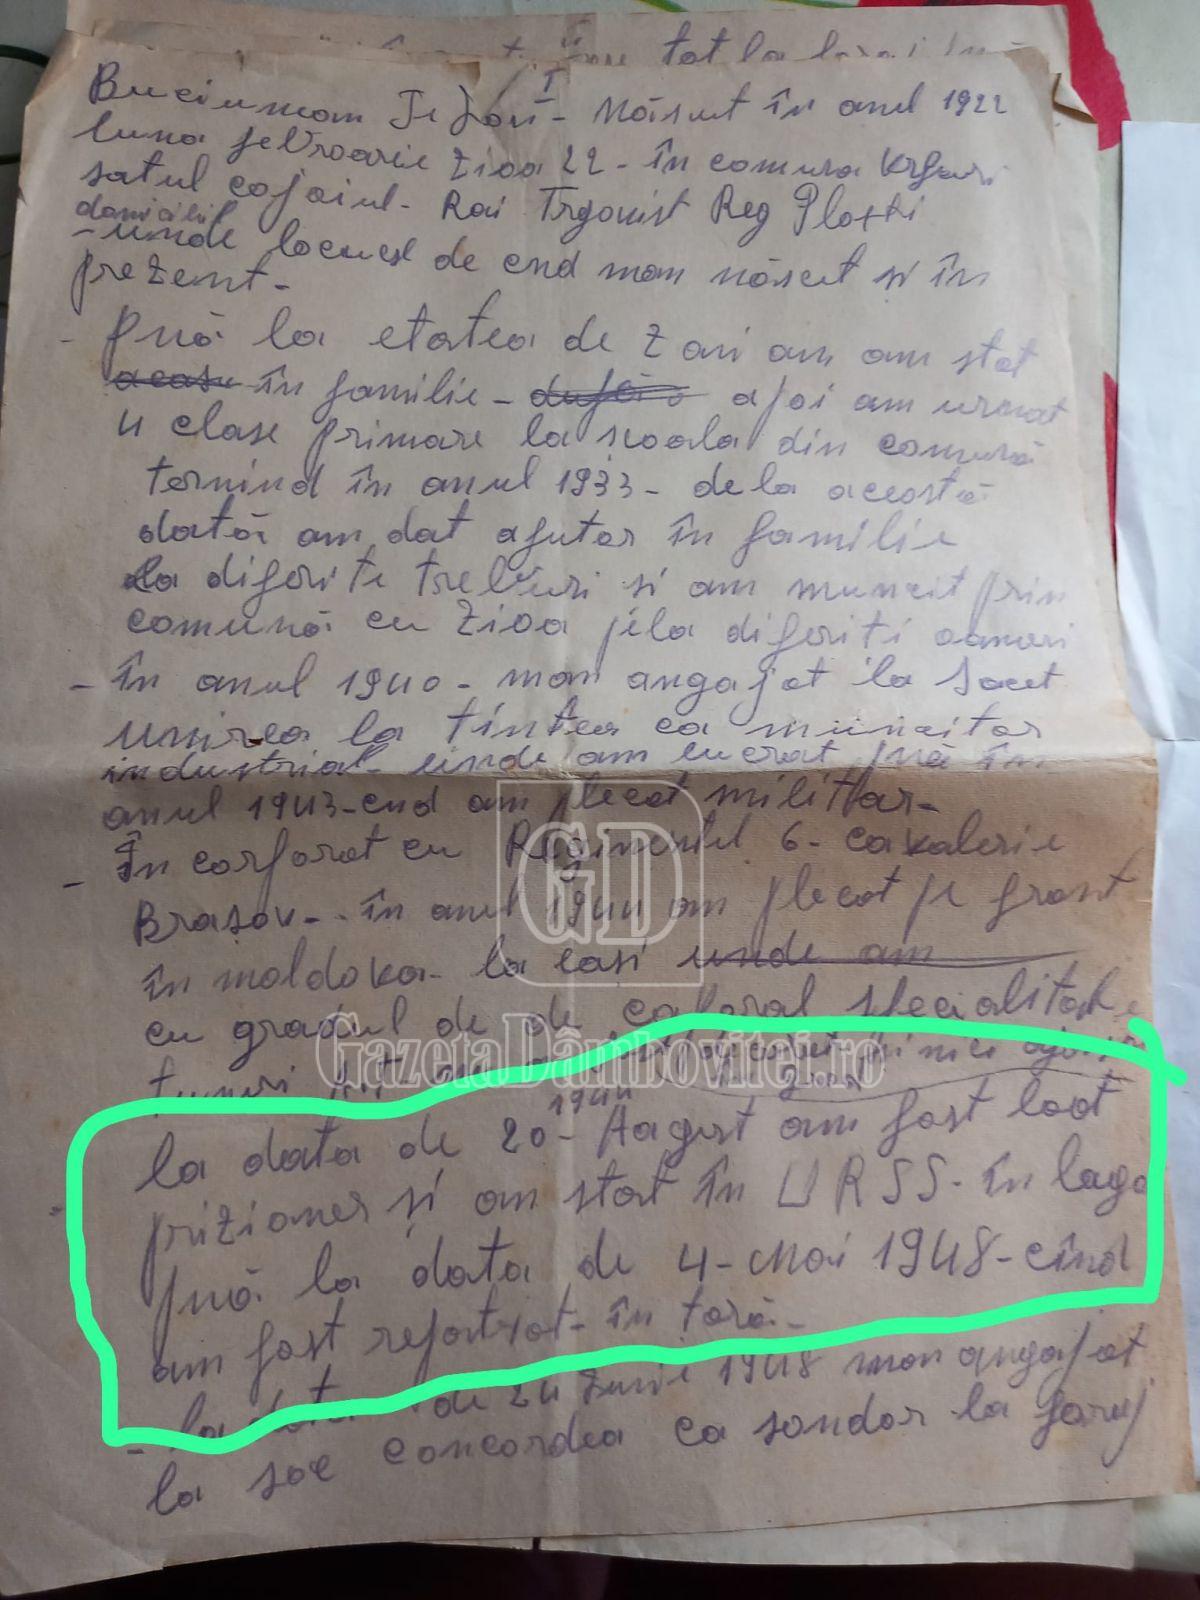 tot la
I
Buciuman - Născut în anul 1922
luna febroarie Zioa 22 - în comuna
satul cojoiul - Rai Trgovist Reg Ploesti
domiciliu
- unde locuesc de cnd man născut și în
prezent -
- pnă la etatea de 7 ani am am stat
acasă în familie - după apoi am urmat
4 clase primare la școala din comună
terminnd în anul 1933 - de la această
dată am dat ajutor în familie
la diferite treburi si am muncit prin
comună cu Zioa pela diferiti oameni
- în anul 1940 - man angajat la Societ
unirea la tintea ca muncitor
industrial - unde am lucrat pnă în
anul 1943 - cnd am plecat militar -
- În corporat cu Regimentul 6 - cavalerie
Brașov - în anul 1944 am plecat pe front
în moldova - la iasi unde am
cu gradul de de caporal specialitate
tunuri
GD
GazetaDâmboviței.ro
1944
la data de 20 - August am fost loat
prizioner și am stat în URSS - în lagă
pnă la data de 4 - Mai 1948 - cînd
am fost repatriat - în țară -
- la data de 24 Iunie 1948 man angajat
la soc concordea ca sondor la foraj